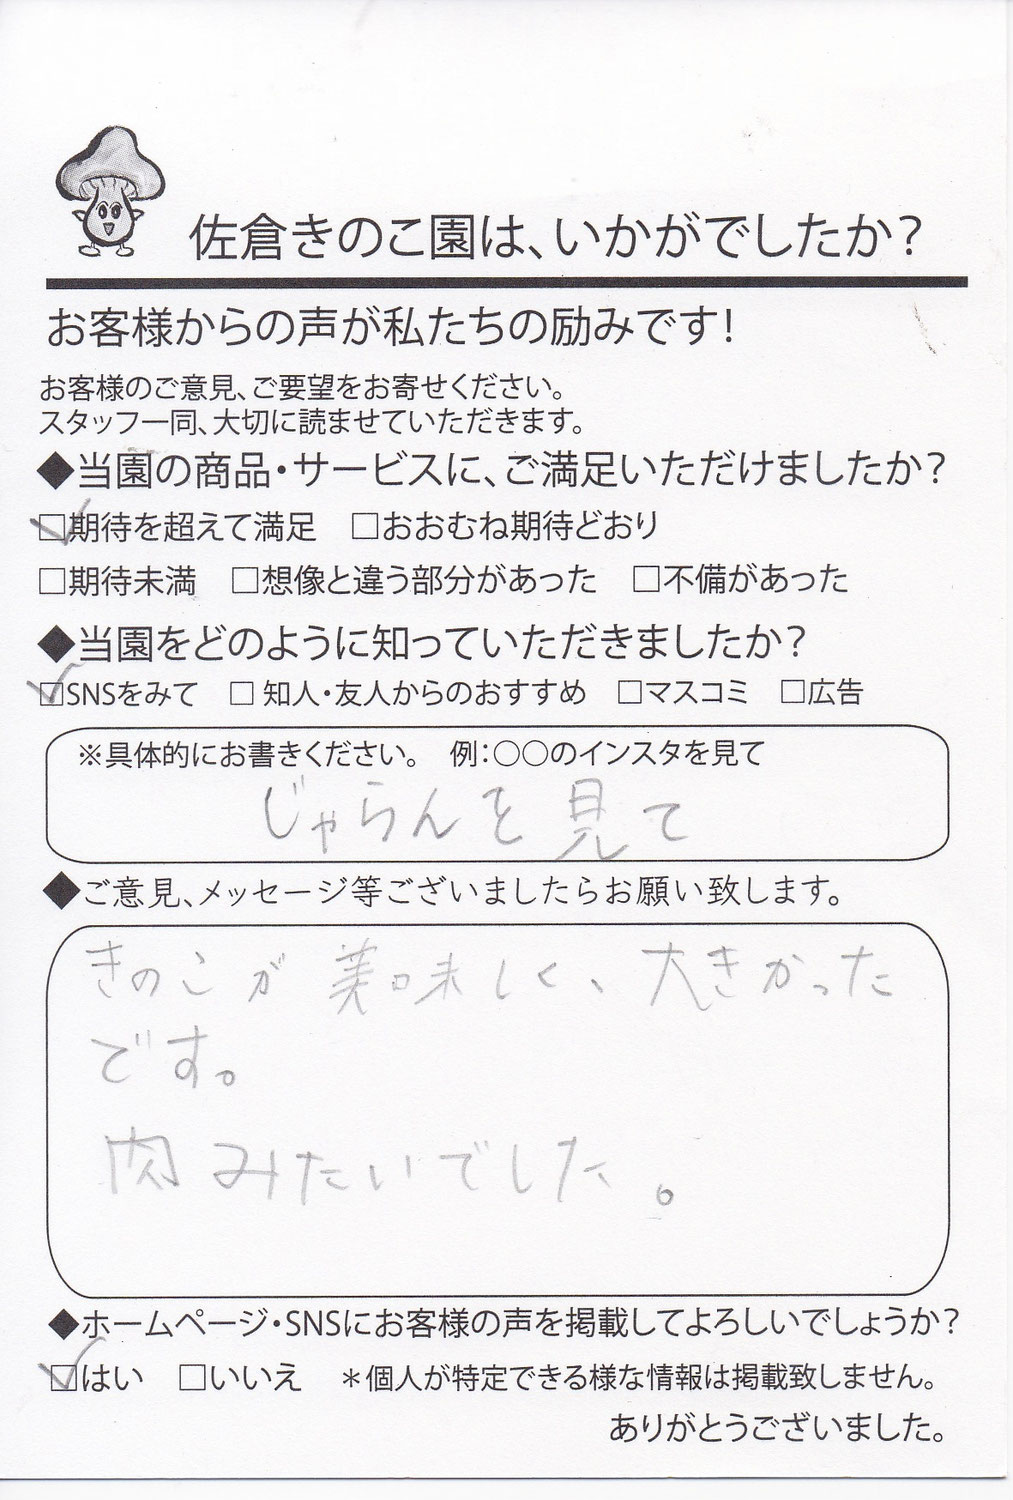 佐倉きのこ園は、いかがでしたか？
お客様からの声が私たちの励みです！
お客様のご意見、ご要望をお寄せください。
スタッフ一同、大切に読ませていただきます。
◆当園の商品・サービスに、ご満足いただけましたか？
☑期待を超えて満足　□おおむね期待どおり
□期待未満　□想像と違う部分があった　□不備があった
◆当園をどのように知っていただきましたか？
☑SNSをみて　□知人・友人からのおすすめ　□マスコミ　□広告
※具体的にお書きください。　例：〇〇のインスタを見て
じゃらんを見て
◆ご意見、メッセージ等ございましたらお願い致します。
きのこが美味しく、大きかった
です。
肉みたいでした。
◆ホームページ・SNSにお客様の声を掲載してよろしいでしょうか？
☑はい　□いいえ　＊個人が特定できる様な情報は掲載致しません。
ありがとうございました。